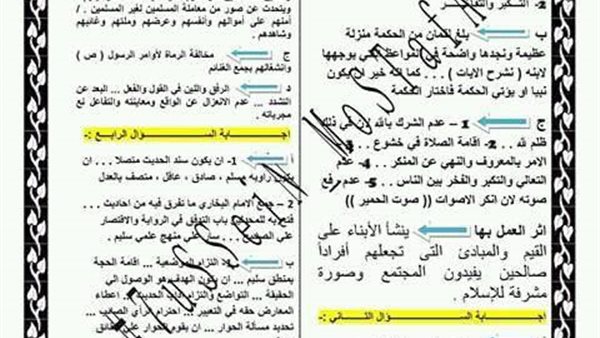 2- التفكير
ب بلغ لقمان من الحكمة منزلة
عظيمة وتجدها واضحة في المواعظ التي يوجهها
لابنه ( تشرح الايات ) . . . كما ان الله خير ان يكون
نبيا او يؤتي الحكمة فاختار الحكمة
ج 1 – عدم الشرك بالله لان في ذلك
ظلم لله .. 2- اقامة الصلاة في خشوع .. 3-
الامر بالمعروف والنهي عن المنكر .. 4- عدم
التعالي والتكبر والفخر بين الناس .. 5- عدم رفع
صوته لان انكر الاصوات (( صوت الحمير ))
اثر العمل بها ينشأ الأبناء على
القيم والمبادئ التى تجعلهم أفراداً
صالحين يفيدون المجتمع وصورة
مشرفة للإسلام .
اجابة السؤال الثاني :-
ويتحدث عن صور من معاملة المسلمين لغير المسلمين .
أمنهم على أموالهم وأنفسهم وعرضهم وملتهم وغائبهم
وشاهدهم .
ج مخالفة الرماة لأوامر الرسول ( ص )
وانشغالهم بجمع الغنائم
د الرفق واللين في القول والفعل ... البعد عن
التشدد ... عدم الانعزال عن الواقع ومعايشته والتفاعل مع
مجرياته .
اجابة السؤال الرابع :-
أ 1- ان يكون سند الحديث متصلا ... ان
يكون راويه مسلم ، صادق ، عاقل ، متصف بالعدل
2 – جمع الامام البخاري ما تفرق فيه من احاديث ...
فتح به للمحدثين باب التوفق في الرواية والاقتصار
على الصحيح ... سار على منهج علمي سليم .
ب التزام الموضعية ... اقامة الحجة
بمنطق سليم ... ان يكون الهدف هو الوصول الي
الحقيقة ... التواضع والتزام اداب الحديث ... اعطاء
المعارض حقه في التعبير ... احترام الرأي
تحديد مسألة الحوار ... ان يقوم الحوار على